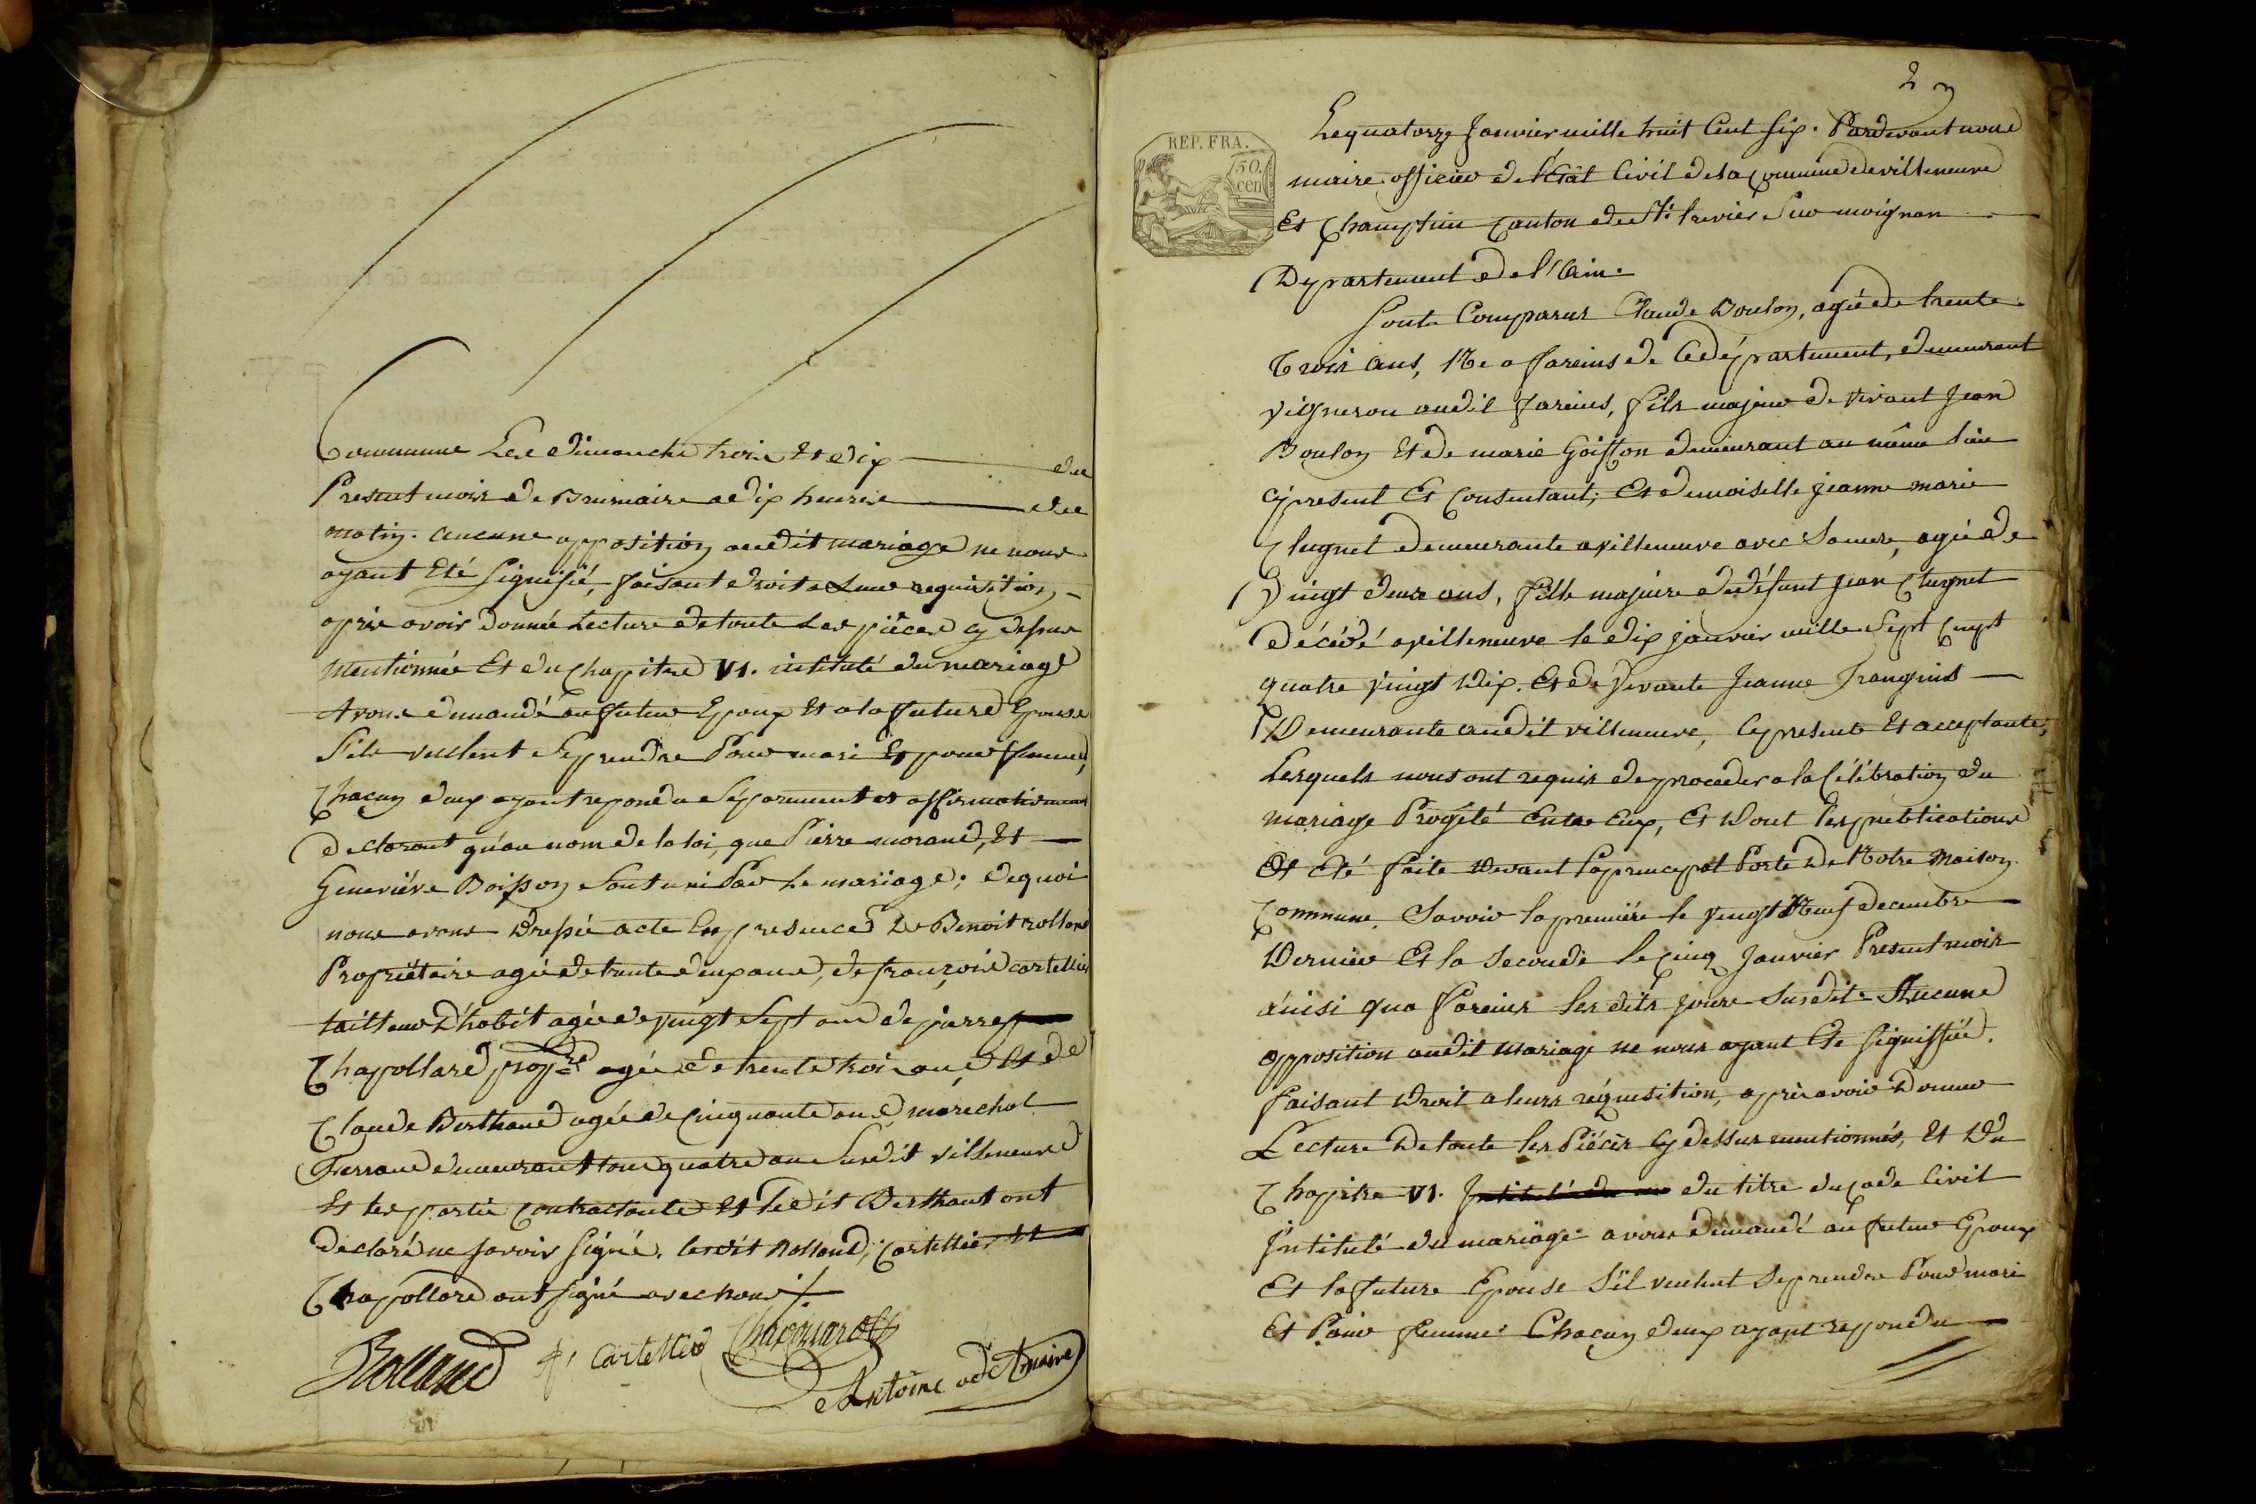 Commune Les dimanche trois Et dix du
Present mois de Brumaire a dix heures du
matin. aucune opposition audit mariage ne nous
ayant Eté signifié, faisant droit a Leur requisition
apris avoir donnée Lecture de toute Les pièces cy dessus
mentionnée Et du Chapitre VI. intitulé du mariage
Avons demandé au futur Epoux Et a la future Epouse
S'ils veulent se prendre Pour mari Et pour femme,
Chacun d'eux ayant repondu Séparement et affirmativement
declarant qu'au nom de la loi, que Pierre morand, Et
Geneviéve Boisson Sont uni Par Le mariage; de quoi
nous avons Dressé acte En presence De Benoit rolland
Propriétaire agée de trente deux ans, de françois cartellier
tailleur D'habit agée de vingt Sept ans de pierre
Chapollard prop.re agée de trente trois ans Et de
Claude Berthaud agée de Cinquante ans marechal
Ferrand demeurant tous quatre au Susdit villeneuve
Et les partie Contractante Et Ledit Berthaut ont
declaré ne savoir signé. Lesdit Rolland, Cartellier Et
Chapollard ont signé avec nous
Rolland f. Cartellier Chapouard
Antoine adt maire
2
REP. FRA.
50. cen
Le quatorze Janvier mille huit Cent Six. Pardevant nous
maire officier de l'État Civil de la Commune de villeneuve
Et Champtein Canton de St. trevier Sur moignan
Département de l'Ain.
Sont Comparus Claude Boulon, agée de trente
Trois ans, Né a fareins de Ce département, demeurant
vigneron audit fareins, fils majeur de vivant Jean
Boulon Et de marie Goiffon demeurant au même lieu
cy present Et Consentant; Et demoiselle Jeanne marie
Clugnet demeurante a villeneuve avec Sa mere, agée de
Vingt deux ans, fille majeure de défunt Jean Clugnet
Décédé a villeneuve le dix janvier mille Sept Cent
quatre vingt Dix. Et de vivante Jeanne
Demeurante audit villeneuve, Cy presente Et acceptante;
Lesquels nous ont requis de proceder a la Célébration du
mariage Progété Entre Eux, Et Dont les publications
Ont été faite Devant la principal Porte De Notre Maison
Commune. Savoir la première le vingt Neuf decembre
Dernier Et la Seconde le Cinq Janvier Present mois
ainsi qua fareins les dits jours Susdit. Aucune
opposition audit mariage ne nous ayant Eté signiffiée.
faisant Droit a leurs réquisition, après avoir Donner
Lecture De toute les Piéces Cy dessus mentionnés, Et Du
Chapitre VI. du titre du Code Civil
Intitulé du mariage avons demandé au futur Epoux
Et la future Epouse S'il veulent Se prendre Pour mari
Et Pour femme: Chacun deux ayant repondu